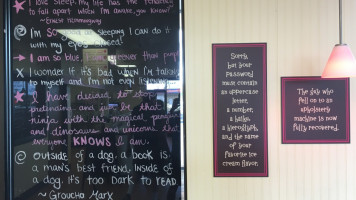 I love sleep. My life has the tendency
to fall apart when I'm awake, you know?"
~Ernest Hemmingway
I'm so good at sleeping I can do it
with my eyes closed!
I am so blue. I am bluer than people
I wonder if it's bad when I'm talking
to myself and I'm not listening.
I have decided to stop
pretending and just be that
ninja with the magical penguin
and dinosaurs and unicorns that
everyone KNOWS I am.
Outside of a dog, a book is
a man's best friend. Inside of
a dog, it's too dark to read
~Groucho Marx
Sorry,
but your
password
must contain
an uppercase
letter,
a number,
a haiku,
a hieroglyph,
and the name
of your
favorite ice
cream flavor.
The guy who
fell on to an
upholstery
machine is now
fully recovered.